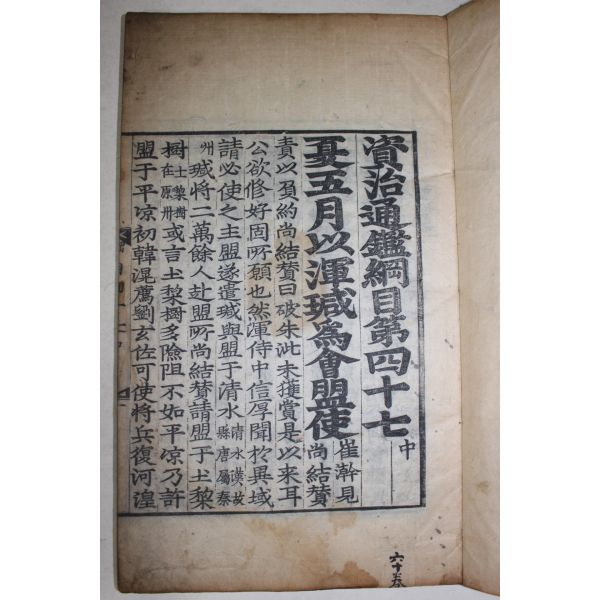 資治通鑑綱目第四十七中
夏五月以渾瑊爲會盟使崔澣見尚結賛
責以負約尚結賛曰破朱泚未獲賞是以来耳
公欲修好固所願也然渾侍中信厚聞於異域
請必使之主盟遂遣瑊與盟于清水清水漢故縣唐屬秦
州瑊将二萬餘人赴盟所尚結賛請盟于土黎
樹土黎樹在原州或言土黎樹多險阻不如平凉乃許
盟于平凉初韓滉薦劉玄佐可使將兵復河湟
六十卷